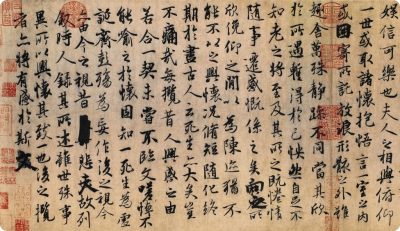 娛信可樂也夫人之相與俯仰
一世或取諸懷抱悟言一室之內
或因寄所託放浪形骸之外雖
趣舍萬殊靜躁不同當其欣
於所遇蹔得於己怏然自足不
知老之將至及其所之既惓情
隨事遷感慨係之矣向之所
欣俛仰之間以為陳迹猶不
能不以之興懷況脩短隨化終
期於盡古人云死生亦大矣豈
不痛哉每攬昔人興感之由
若合一契未嘗不臨文嗟悼不
能喻之於懷固知一死生為虛
誕齊彭殤為妄作後之視今
亦由今之視昔悲夫故列
敘時人錄其所述雖世殊事
異所以興懷其致一也後之攬
者亦將有感於斯文